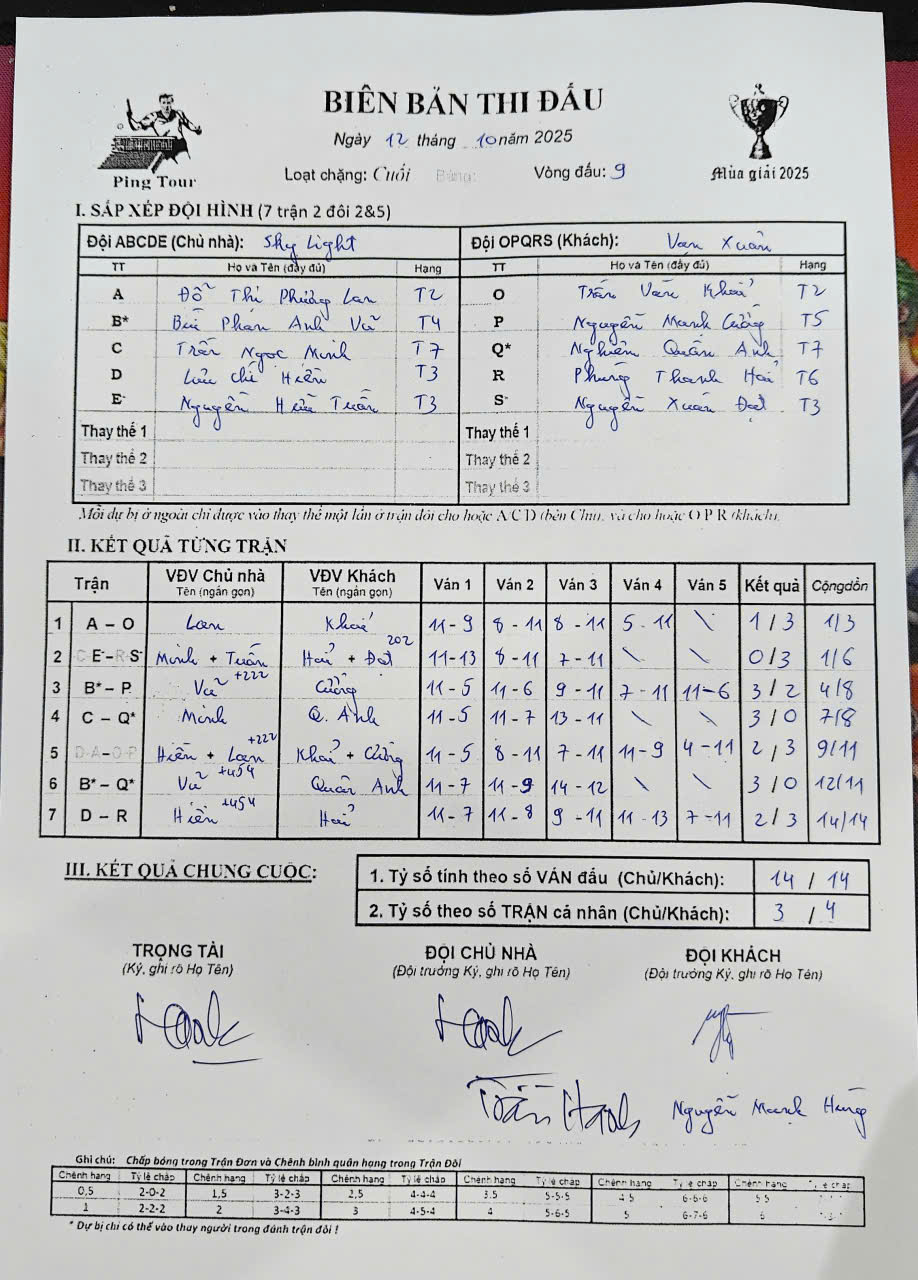 BIÊN BẢN THI ĐẤU
Ngày 12 tháng 10 năm 2025
Ping Tour
Loạt chặng: Cuối Bảng: Vòng đấu: 9
Mùa giải 2025
I. SẮP XẾP ĐỘI HÌNH (7 trận 2 đôi 2&5)
Đội ABCDE (Chủ nhà): Sky Light Đội OPQRS (Khách): Vạn Xuân
TT Họ và Tên (đầy đủ) Hạng TT Họ và Tên (đầy đủ) Hạng
A Đỗ Thị Phương Lan T2 O Trần Văn Khải T2
B* Bùi Phan Anh Vũ T4 P Nguyễn Mạnh Cường T5
C Trần Ngọc Minh T7 Q* Nghiêm Quân Anh T7
D Lưu Chí Hiền T3 R Phùng Thanh Hải T6
E- Nguyễn Hữu Tuấn T3 S- Nguyễn Xuân Đạt T3
Thay thế 1 Thay thế 1
Thay thế 2 Thay thế 2
Thay thế 3 Thay thế 3
Mỗi dự bị ở ngoài chỉ được vào thay thế một lần ở trận đôi cho hoặc A/C/D (bên Chủ), và cho hoặc O P R (khách).
II. KẾT QUẢ TỪNG TRẬN
Trận VĐV Chủ nhà Tên (ngắn gọn) VĐV Khách Tên (ngắn gọn) Ván 1 Ván 2 Ván 3 Ván 4 Ván 5 Kết quả Cộngdồn
1 A – O Lan Khải 11-9 8-11 8-11 5-11 \ 1/3 1/3
2 C E-–R S- Minh + Tuấn Hải + Đạt 202 11-13 8-11 7-11 \ \ 0/3 1/6
3 B* – P Vũ +222 Cường 11-5 11-6 9-11 7-11 11-6 3/2 4/8
4 C – Q* Minh Q. Anh 11-5 11-7 13-11 \ \ 3/0 7/8
5 D-A – O-P Hiền + Lan +222 Khải + Cường 11-5 8-11 7-11 11-9 4-11 2/3 9/11
6 B* – Q* Vũ +454 Quân Anh 11-7 11-9 14-12 \ \ 3/0 12/11
7 D – R Hiền +454 Hải 11-7 11-8 9-11 11-13 7-11 2/3 14/14
III. KẾT QUẢ CHUNG CUỘC:
1. Tỷ số tính theo số VÁN đấu (Chủ/Khách): 14 / 14
2. Tỷ số theo số TRẬN cá nhân (Chủ/Khách): 3 / 4
TRỌNG TÀI ĐỘI CHỦ NHÀ ĐỘI KHÁCH
(Ký, ghi rõ Họ Tên) (Đội trưởng Ký, ghi rõ Họ Tên) (Đội trưởng Ký, ghi rõ Họ Tên)
Nguyễn Mạnh Hùng
Ghi chú: Chấp bóng trong Trận Đơn và Chênh bình quân hạng trong Trận Đôi
Chênh hạng Tỷ lệ chấp Chênh hạng Tỷ lệ chấp Chênh hạng Tỷ lệ chấp Chênh hạng Tỷ lệ chấp Chênh hạng Tỷ lệ chấp Chênh hạng Tỷ lệ chấp
0,5 2-0-2 1,5 3-2-3 2,5 4-4-4 3.5 5-5-5 4.5 6-6-6 5.5
1 2-2-2 2 3-4-3 3 4-5-4 4 5-6-5 5 6-7-6 6
* Dự bị chỉ có thể vào thay người trong đánh trận đôi !